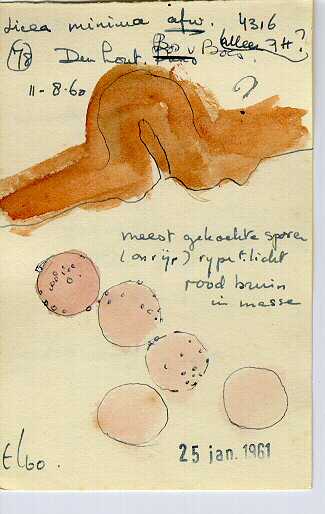 Licea minima afw. 4316
Den Hout. Bos v Bos (alleen JH?)
11-8-60
?
meest gekookte sporen
(onrijp) rijpe t. licht
rood bruin
in masse
25 jan. 1961